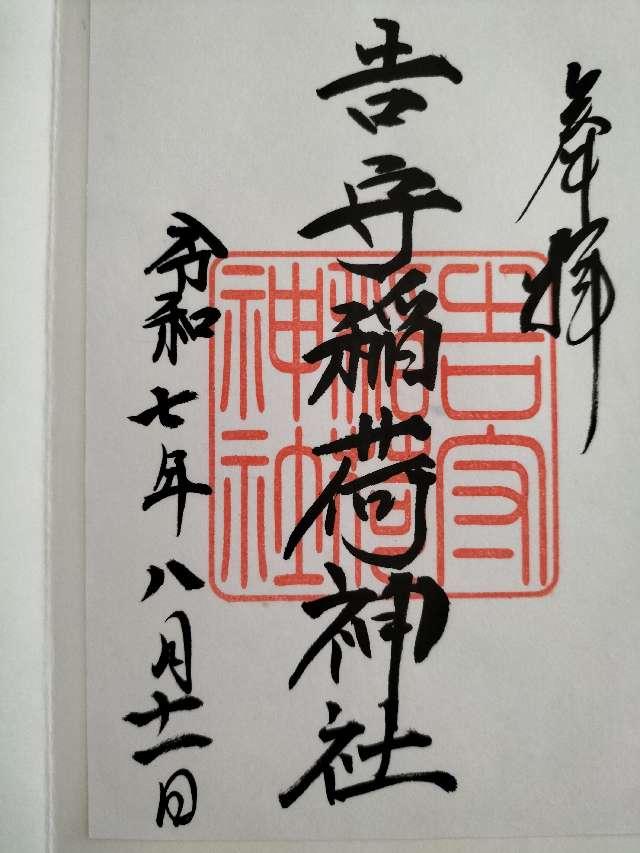 奉拝
吉守稲荷神社
吉守稲荷神社
令和七年八月十一日